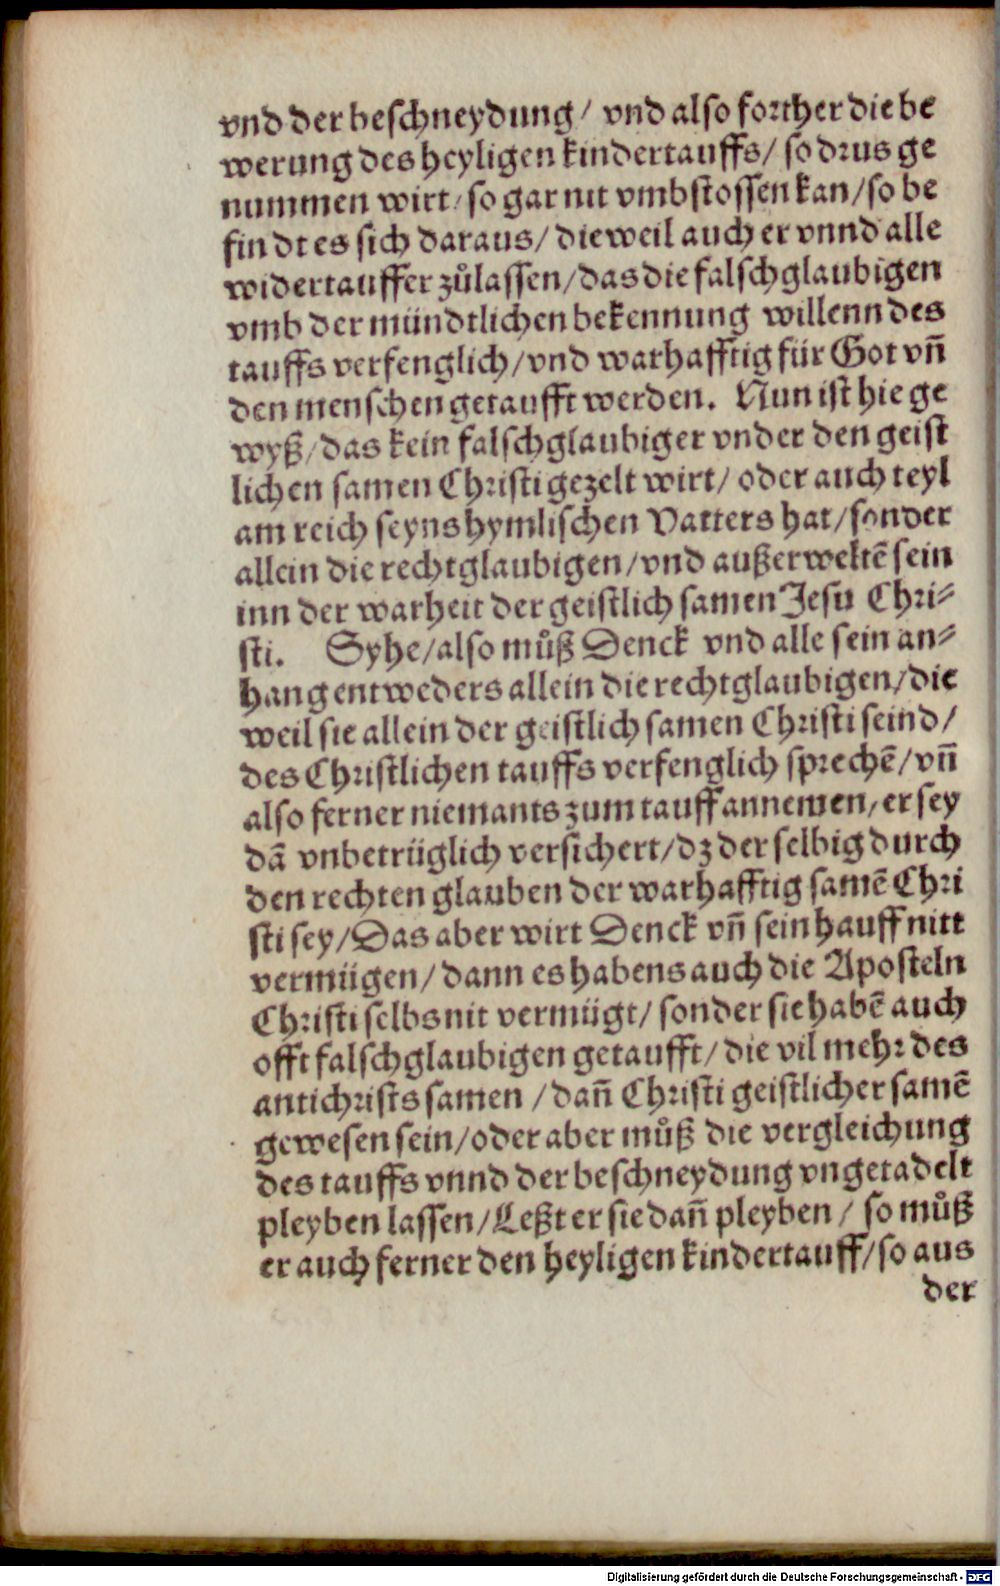 vnd der beschneydung/ vnd also forther die be
werung des heyligen kindertauffs/ so drus ge
nummen wirt/ so gar nit vmbstossen kan/ so be
findt es sich daraus/ dieweil auch er vnnd alle
widertauffer zůlassen/ das die falschglaubigen
vmb der mündtlichen bekennung willenn des
tauffs verfenglich/ vnd warhafftig für Got vn̄
den menschen getaufft werden. Nun ist hie ge
wyß/ das kein falschglaubiger vnder den geist
lichen samen Christi gezelt wirt/ oder auch teyl
am reich seyns hymlischen Vatters hat/ sonder
allein die rechtglaubigen/ vnd außerweltē sein
inn der warheit der geistlich samen Jesu Chri⸗
sti. Syhe/ also můß Denck vnd alle sein an⸗
hang entweders allein die rechtglaubigen/ die
weil sie allein der geistlich samen Christi seind/
des Christlichen tauffs verfenglich sprechē/ vn̄
also ferner niemants zum tauff annemen/ er sey
dā vnbetrüglich versichert/ dz der selbig durch
den rechten glauben der warhafftig samē Chri
sti sey/ Das aber wirt Denck vn̄ sein hauff nitt
vermügen/ dann es habens auch die Aposteln
Christi selbs nit vermügt/ sonder sie habē auch
offt falschglaubigen getaufft/ die vil mehr des
antichrists samen / dan̄ Christi geistlicher samē
gewesen sein/ oder aber můß die vergleichung
des tauffs vnnd der beschneydung vngetadelt
pleyben lassen/ Leßt er sie dan̄ pleyben/ so můß
er auch ferner den heyligen kindertauff/ so aus
der
Digitalisierung gefördert durch die Deutsche Forschungsgemeinschaft - DFG